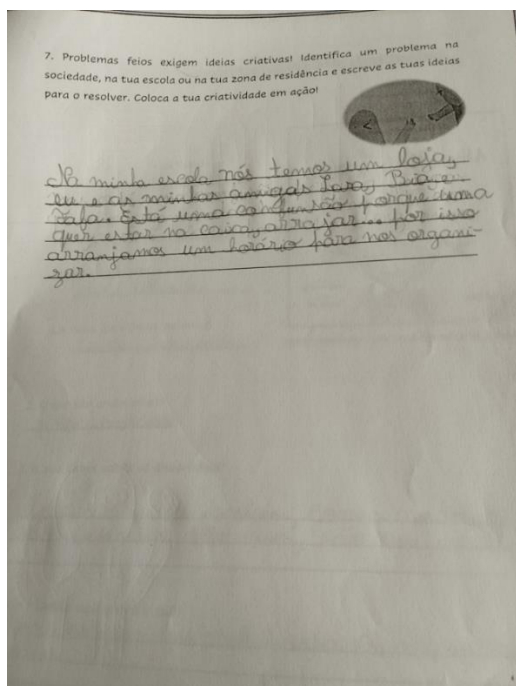 7. Problemas feios exigem ideias criativas! Identifica um problema na
sociedade, na tua escola ou na tua zona de residência e escreve as tuas ideias
para o resolver. Coloca a tua criatividade em ação!
Na minha escola nós temos um loja,
eu e as minhas amigas Lara, Bia e
Fafa. Está uma confunsão porque uma
quer estar na caixa, arranjar... por isso
arranjamos um horário para nos organi-
zar.